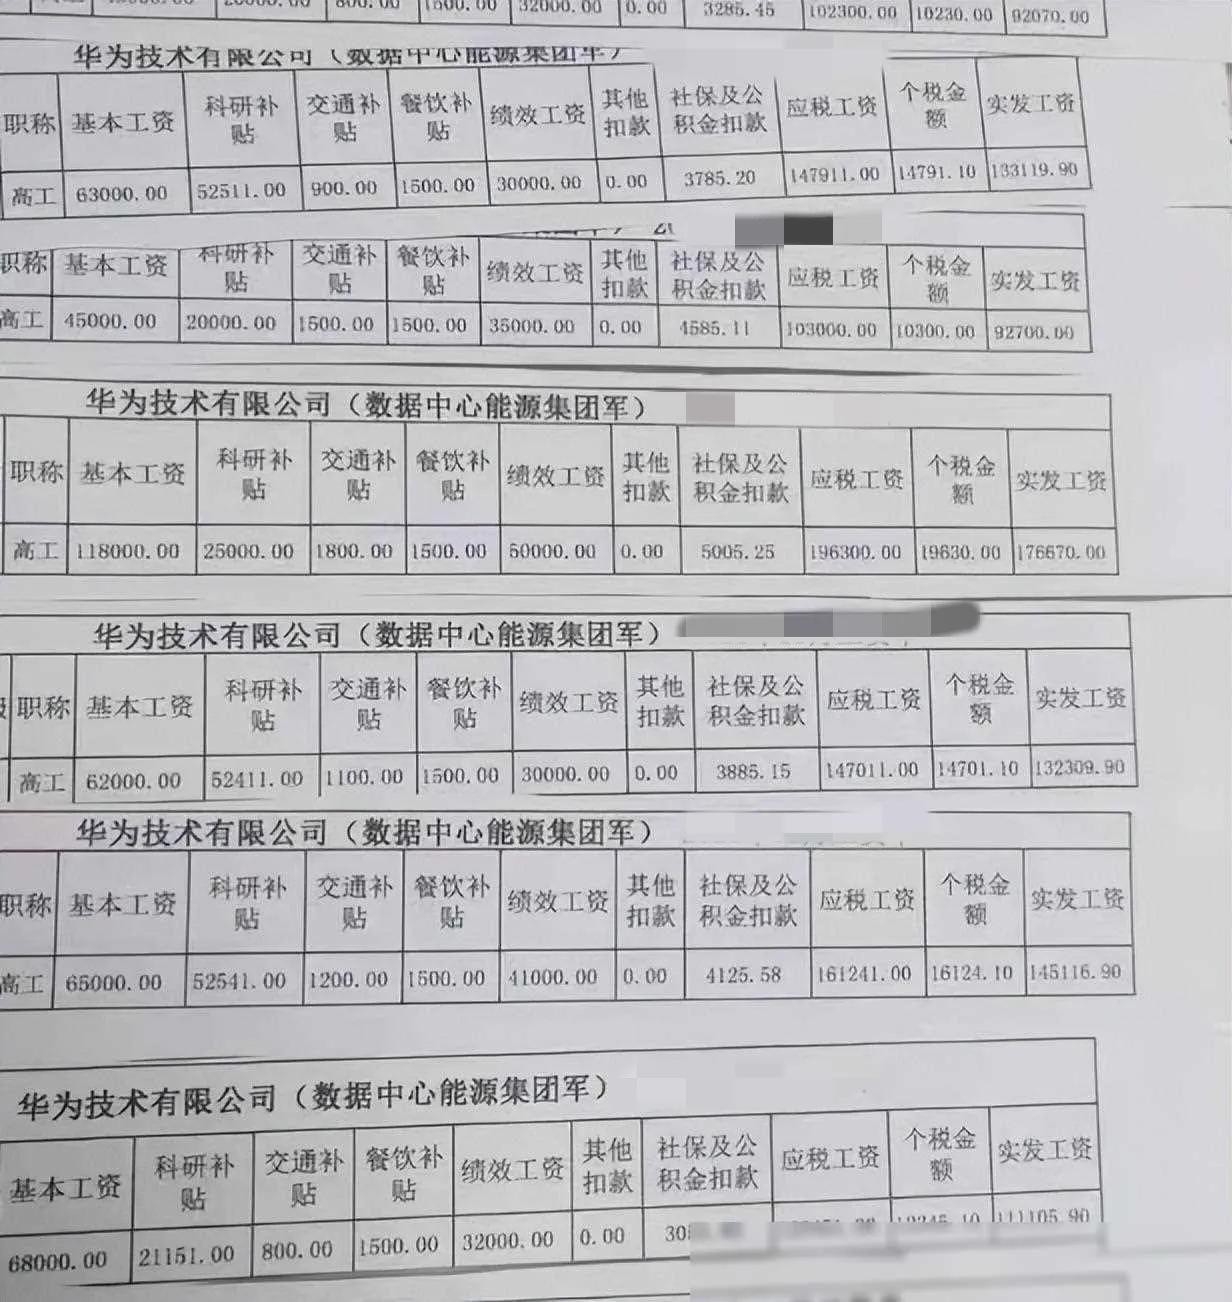 800.00 1500.00 32000.00 0.00 3285.45 102300.00 10230.00 92070.00
华为技术有限公司（数据中心能源集团军）
职称 基本工资 科研补贴 交通补贴 餐饮补贴 绩效工资 其他扣款 社保及公积金扣款 应税工资 个税金额 实发工资
高工 63000.00 52511.00 900.00 1500.00 30000.00 0.00 3785.20 147911.00 14791.10 133119.90
职称 基本工资 科研补贴 交通补贴 餐饮补贴 绩效工资 其他扣款 社保及公积金扣款 应税工资 个税金额 实发工资
高工 45000.00 20000.00 1500.00 1500.00 35000.00 0.00 4585.11 103000.00 10300.00 92700.00
华为技术有限公司（数据中心能源集团军）
职称 基本工资 科研补贴 交通补贴 餐饮补贴 绩效工资 其他扣款 社保及公积金扣款 应税工资 个税金额 实发工资
高工 118000.00 25000.00 1800.00 1500.00 50000.00 0.00 5005.25 196300.00 19630.00 176670.00
华为技术有限公司（数据中心能源集团军）
职称 基本工资 科研补贴 交通补贴 餐饮补贴 绩效工资 其他扣款 社保及公积金扣款 应税工资 个税金额 实发工资
高工 62000.00 52411.00 1100.00 1500.00 30000.00 0.00 3885.15 147011.00 14701.10 132309.90
华为技术有限公司（数据中心能源集团军）
职称 基本工资 科研补贴 交通补贴 餐饮补贴 绩效工资 其他扣款 社保及公积金扣款 应税工资 个税金额 实发工资
高工 65000.00 52541.00 1200.00 1500.00 41000.00 0.00 4125.58 161241.00 16124.10 145116.90
华为技术有限公司（数据中心能源集团军）
基本工资 科研补贴 交通补贴 餐饮补贴 绩效工资 其他扣款 社保及公积金扣款 应税工资 个税金额 实发工资
68000.00 21151.00 800.00 1500.00 32000.00 0.00 111105.90